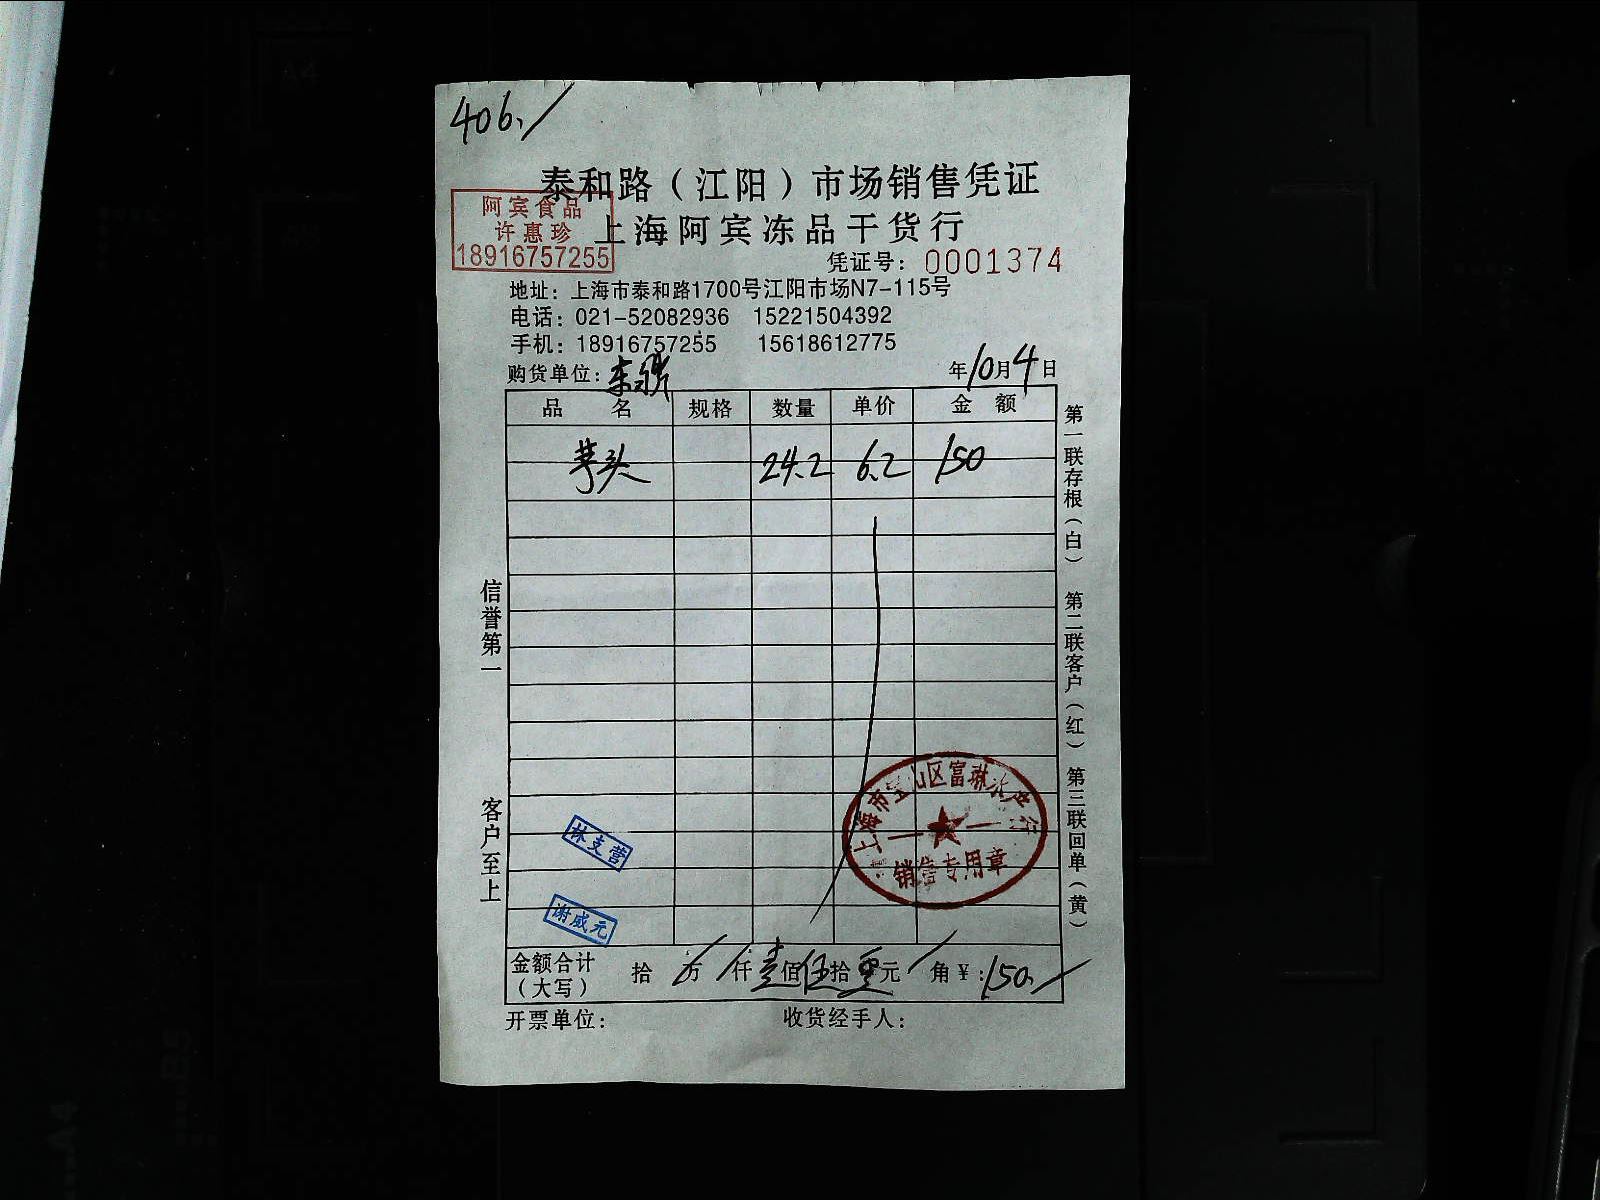 406./
泰和路（江阳）市场销售凭证
阿宾食品
许惠珍
18916757255
上海阿宾冻品干货行
凭证号：0001374
地址：上海市泰和路1700号江阳市场N7-115号
电话：021-52082936 15221504392
手机：18916757255 15618612775
购货单位： 年10月4日
品名 规格 数量 单价 金额
芋头 24.2 6.2 150
信誉第一
客户至上
第一联存根（白） 第二联客户（红） 第三联回单（黄）
上海市宝山区富琳水产行
销售专用章
林支营
谢威元
金额合计（大写） 拾 / 万 / 仟壹佰伍拾零元 / 角 ¥：150./
开票单位： 收货经手人：